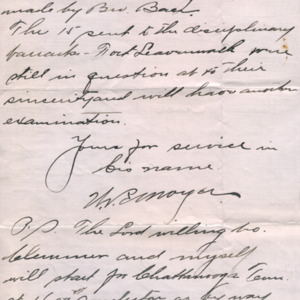 made by Bro. Baer
The 15 sent to the disciplinary
barracks - Fort Leavenworth were
still in question as to their
sincerity and will have another
examination.
Yours for service in
his name
P.S. The Lord willing bro.
Clemmer and myself
will start for Chattanooga Tenn.
at
way